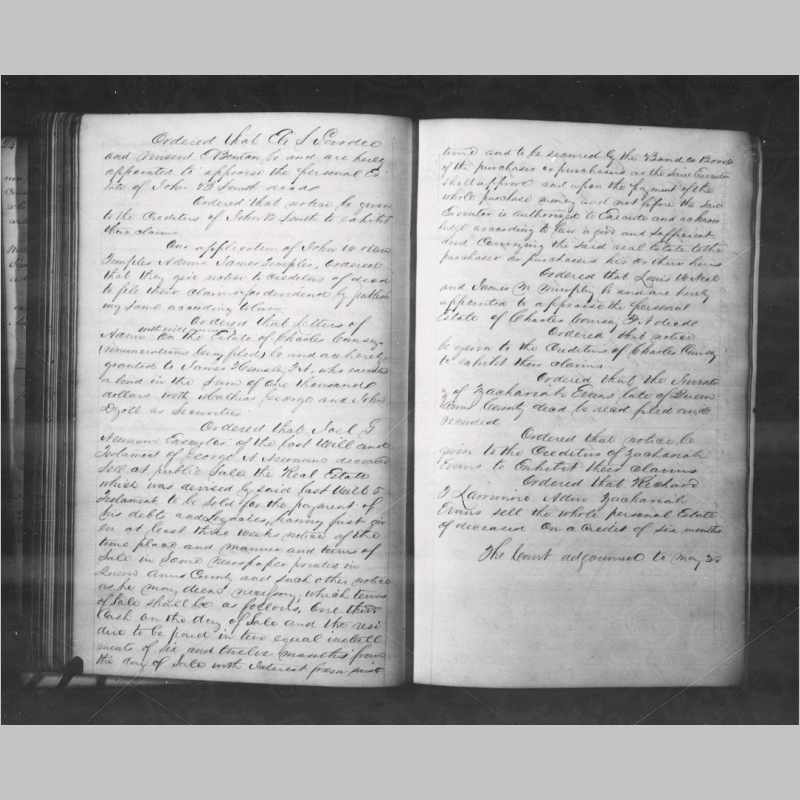 Ordered that
and Vincent Benton be and are hereby
appointed to appraise the personal Es
tate of John B Smith deceased
Ordered that notice be given
to the Creditors of John B Smith to exhibit
their claims
One application of John W
Temples Admr James Temples, Ordered
that they give notice to creditors of deced
to file their claims for dividend by publish
ing same according to law
Ordered that letters of
Admn with will annexed on the Estate of Charles Comsey
be and are hereby
granted to James T Comsey who executed
a bond in the sum of One thousand
dollars with Mathias George and John
as Securities
Ordered that Joel G
Newnam Executor of the last Will and
Testament of George A Newnam deceased
sell at public Sale the Real Estate
which was devised by said last Will &
Testament to be sold for the payment of
his debts and Legacies, having first giv
en at least three weeks notice of the
time place and manner and terms of
Sale in some newspaper printed in
Queen Anns County and such other notice
as he may deem necessary, which terms
of Sale shall be as follows, One third
Cash on the day of Sale and the resi
due to be paid in two equal install
ments of six and twelve months from
the day of Sale with Interest from said
time and to be secured by the Bond or Bonds
of the purchaser or purchasers as the said Executor
shall approve and upon the payment of the
whole purchase money and not before the said
Executor is authorized to Execute and acknow
ledge according to law a good and sufficient
deed Conveying the said real Estate to the
purchaser or purchasers his or their heirs
Ordered that Louis
and James M Murphy be and are hereby
appointed to appraise the personal
Estate of Charles Comsey deceased
Ordered that notice
be given to the Creditors of Charles Comsey
to exhibit their claims
Ordered that the Invento
ry of Zachariah Evans late of Queen
Anns County deced be read filed and
recorded
Ordered that notice be
given to the Creditors of Zachariah
Evans to Exhibit their claims
Ordered that Richard
T Larrimore Admr Zachariah
Evans sell the whole personal Estate
of deceased on a Credit of six months
The Court adjourned to May